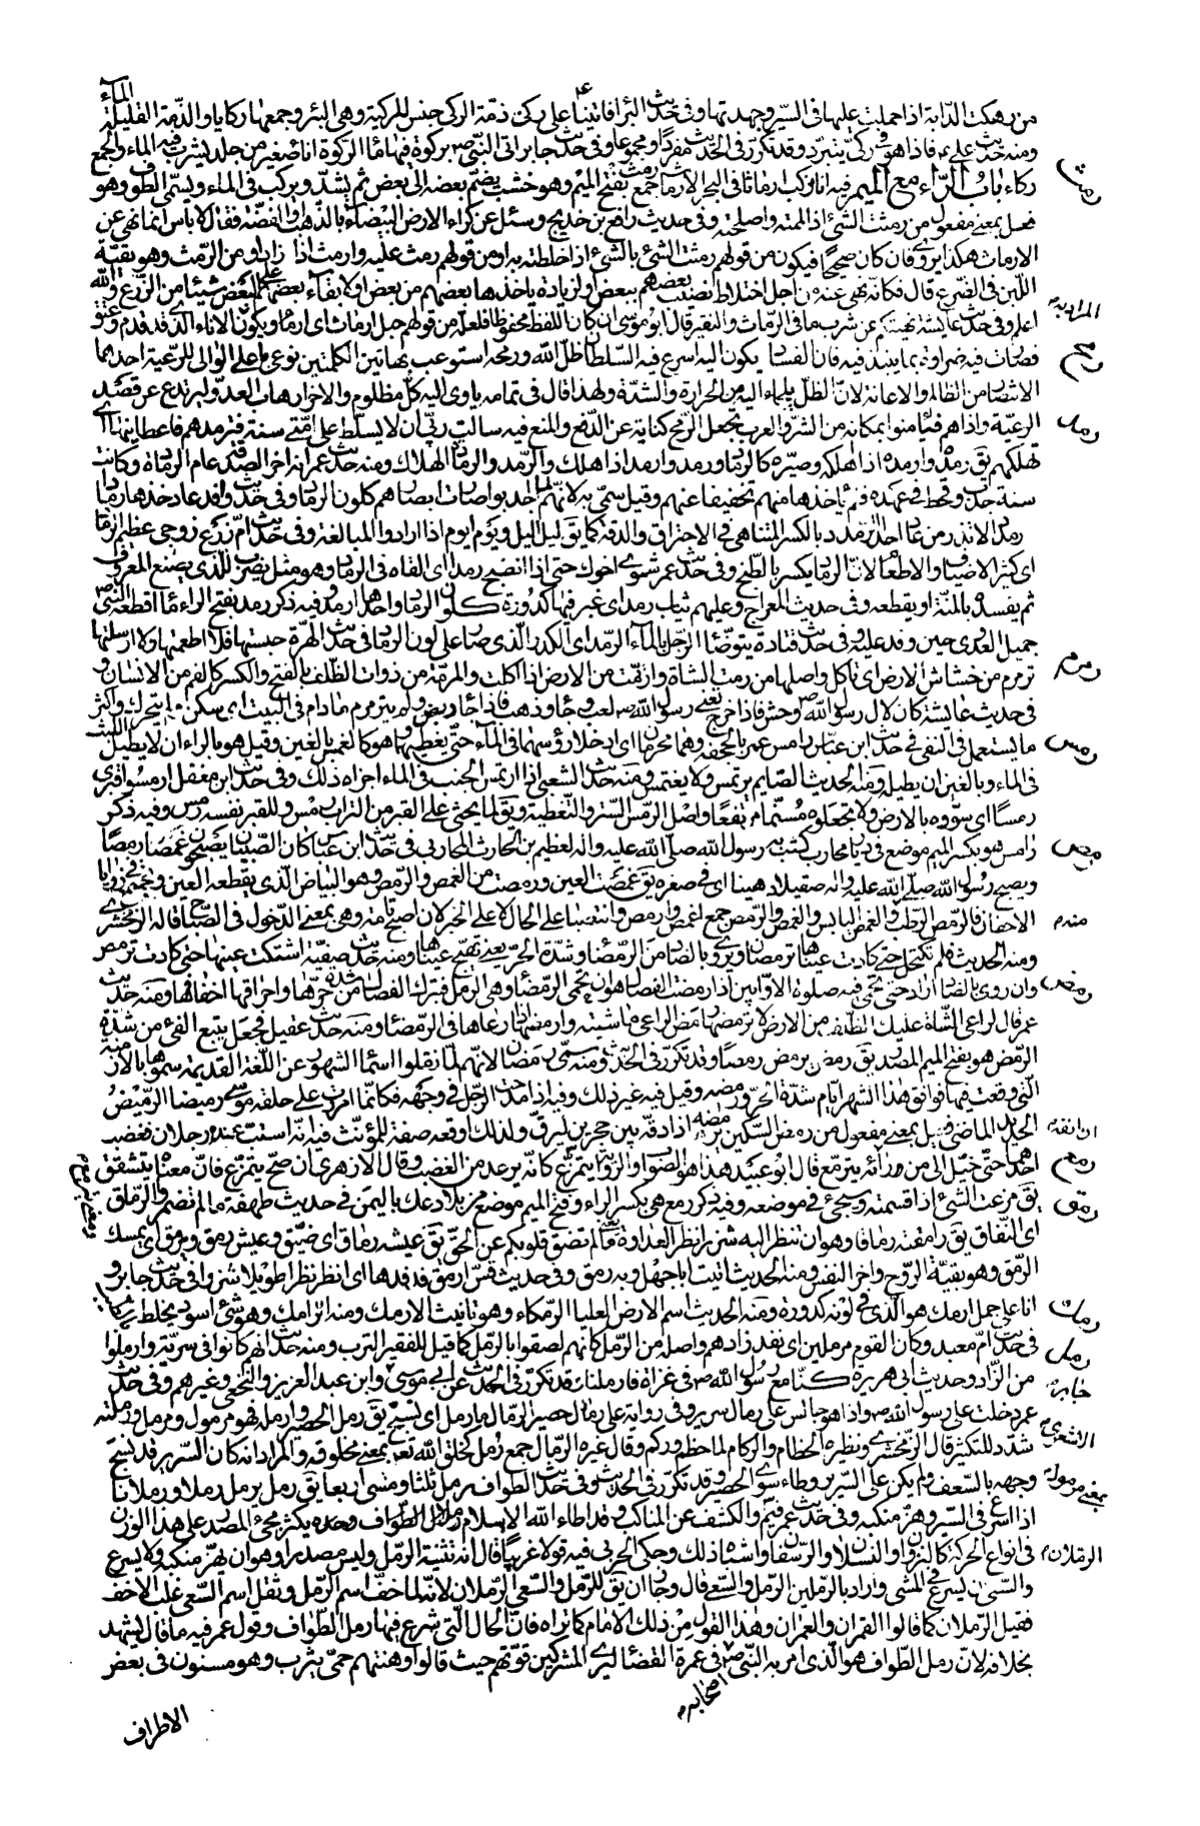 من دهكت الدّابة اذا حملت عليها فى السّير وجهدتها وفى حديث البرا فاتينا على ركى ذمّة الركى جنس للركية وهى البئر وجمعها ركايا والذّمة القليلة الماء
ومنه حديث على ع فاذا هو فى ركىّ يتبرد وقد تكرّر فى الحديث مفردًا ومجموعا وفى حديث جابر اتى النبىّ ص بركوة فيها ماء الركوة اناء صغير من جلد يشرب فيه الماء والجمع
ركاء باب الرّاء مع الميم فيه انا نركب ارماثا لنا فى البحر الارماث جمع رمث بفتح الميم وهو خشب يضمّ بعضه الى بعض ثم يشدّ ويركب فى الماء ويسمّى الطوف وهو
رمث
فعل بمعنى مفعول من رمثت الشئ اذا لممته واصلحته وفى حديث رافع بن خديج وسئل عن كراء الارض البيضاء بالذّهب والفضّة فقال لا باس انما نهى عن
الارماث هكذا يروى فان كان صحيحًا فيكون من قولهم رمثت الشئ بالشئ اذا خلطته به او من قولهم رمث عليه وارمث اذا زاد او من الرّمث وهو بقيّة
اللّبن فى الضّرع قال فكانّه نهى عنه من اجل اختلاط نصيب بعضهم ببعض او لزيادة ياخذها بعضهم من بعض او لابقاء بعضهم على البعض شيئا من الزّرع والله
اعلم وفى حديث عايشة نهيتكم عن شرب ما فى الرّماث والنقير قال ابو موسى ان كان اللفظ محفوظا فلعلّه من قولهم حبل ارماث اى ارمام ويكون الاناء الّذى قد قدم وعتق
المراد به
فصارت فيه ضراوة بما ينبذ فيه فان الفساد يكون اليه اسرع فيه السّلطان ظلّ الله ورمحه استوعب بهاتين الكلمتين نوعى ما على الوالى للرّعية احدهما
رمح
الانتصار من الظالم والاعانة لانّ الظلّ يلجاء اليه من الحرارة والشدّة ولهذا قال فى تمامه ياوى اليه كلّ مظلوم والاخر ارهاب العدوّ ليرتدع عن قصد
الرعيّة واذاهم فيامنوا بمكانه من الشرّ والعرب تجعل الرّمح كناية عن الدّفع والمنع فيه سالت ربّى ان لا يسلّط على امّتى سنة فترمدهم فاعطانيها اى
رمد
تهلكهم يق رمده وارمده اذا اهلكه وصيّره كالرماد ورمد وارمد اذا هلك والرّمد والرمادة الهلاك ومنه حديث عمر انه اخر الصدقة عام الرمادة وكانت
سنة جدب وقحط فى عهده فلم ياخذها منهم تخفيفا عنهم وقيل سمّى به لانّهم لما اجدبوا صارت الوانهم كلون الرماد وفى حديث وافد عاد خذها رمادا
رمددا لا تذر من عاد احدا الرمدد بالكسر المتناهى فى الاحتراق والدقة كما يق ليل اليل ويوم ايوم اذا ارادوا المبالغة وفى حديث امّ زرع زوجى عظيم الرماد
اى كثير الاضياف والاطعام لانّ الرماد يكسر بالطبخ وفى حديث عمر شوى اخوك حتى اذا انضج رمد اى القاه فى الرماد وهو مثل يضرب للّذى يصنع المعروف
ثم يفسده بالمنّة او يقطعه وفى حديث المعراج وعليهم ثياب رمد اى غبر فيها كدورة كلون الرماد واحدها ارمد وفيه ذكر رمد بفتح الراء ماء اقطعه النبىّ ص
جميل العدرى حين وفد عليه وفى حديث قتادة يتوضّا الرجل بالماء الرّمد اى الكدر الّذى صار على لون الرماد فى حديث الهرّة حبستها فلا اطعمتها ولا ارسلتها
ترمرم من خشاش الارض اى تاكل واصلها من رمت الشاة وارتمّت من الارض اذا اكلت والمرمّة من ذوات الظلف بالفتح والكسر كالفم من الانسان و
رمرم
فى حديث عايشة كان لآل رسول الله ص وحش فاذا خرج تعنى رسول الله ص لعب وجاء وذهب فاذا جاء ربض ولم يترمرم ما دام فى البيت اى سكن ولم يتحرّك واكثر
ما يستعمل فى النفى فى حديث ابن عبّاس رامس عمر بالجحفة وهما محرمان اى ادخلا رؤسهما فى الماء حتى يغطيها وهو كالغمس بالغين وقيل هو بالراء ان لا يطيل اللبث
رمس
فى الماء وبالغين ان يطيله ومنه الحديث الصّايم يرتمس ولا يغتمس ومنه حديث الشعبى اذا ارتمس الجنب فى الماء اجزاه ذلك وفى حديث ابن مغفل ارمسوا قبرى
رمسًا اى سوّوه بالارض ولا تجعلوه مسنّما مرتفعًا واصل الرّمس السّتر والتّغطية ويق لما يحثى على القبر من التراب رمس وللقبر نفسه رمس وفيه ذكر
رامس هو بكسر الميم موضع فى ديار محارب كتب به رسول الله صلى الله عليه واله لعظيم بن الحارث المحاربى فى حديث ابن عبّاس كان الصّبيان يصبحون غمصًا رمصًا
رمص
ويصبح رسول الله صلى الله عليه واله صقيلا دهينا اى فى صغره يق غمصت العين ورمصت من الغمص والرّمص وهو البياض الّذى تقطعه العين ويجتمع فى زوايا
الاجفان والرّمص الرطب والغمص اليابس والغمص والرّمص جمع اغمص وارمص وانتصبا على الحال لا على الخبر لان اصبح تامّة وهى بمعنى الدّخول فى الصّباح قاله الزمخشرى
منه م
ومنه الحديث فلم تكتحل حتى كادت عيناها ترمصان ويروى بالضاد من الرّمضاء وشدّة الحرّ يعنى تهيّج عيناها ومنه حديث صفيّة اشتكت عينها حتى كادت ترمص
وان روى بالضاد اراد حتى تحمى فيه صلوة الاوّابين اذا رمضت الفصال هو ان تحمى الرّمضاء وهى الرمل فتبرك الفصال من شدّة حرّها واحراقها اخفافها ومنه حديث
رمض
عمر قال لراعى الشّاة عليك الظّلف من الارض لا ترمضها رمّض الراعى ماشيته وارمضها اذا رعاها فى الرّمضاء ومنه حديث عقيل فجعل يتبع الفئ من شدّة
الرّمض هو بفتح الميم المصدر يق رمض يرمض رمضًا وقد تكرّر فى الحديث ومنه سمّى رمضان لانّهم لمّا نقلوا اسماء الشهور عن اللّغة القديمة سمّوها بالازمنة
الّتى وقعت فيها فوافق هذا الشهر ايام شدّة الحرّ ورمضه وقيل فيه غير ذلك وفيه اذا مدحت الرّجل فى وجهه فكانّما امررت على حلقه موسى رميضا الرّميض
الحديد الماضى فعيل بمعنى مفعول من رمض السّكين يرمضه اذا دقّه بين حجرين ليرقّ ولذلك اوقعه صفة للمؤنّث فيه انّه استبّ عنده رجلان فغضب
احدهما حتّى خيّل الى من رآه انّ انفه يترمّع قال ابو عبيد هذا هو الصّواب والرّواية يتمزّع كانّه يرعد من الغضب وقال الازهرى ان صحّ يتمزّع فانّ معناه يتشقّق
ان انفه
رمع
يق مزعت الشئ اذا قسمته وسيجئ فى موضعه وفيه ذكر رمع هى بكسر الراء وفتح الميم موضع من بلاد عك باليمن فى حديث طهفة ما لم تضمروا الرّماق
رمق
اى النّفاق يق رامقته رماقا وهو ان تنظر اليه شزرا نظر العداوة يعنى ما لم تضق قلوبكم عن الحقّ يق عيشه رماق اى ضيّق وعيش رمق ومرمق اى يمسك
الرّمق وهو بقيّة الرّوح واخر النفس ومنه الحديث اتيت ابا جهل وبه رمق وفى حديث قسّ ارمق فدفدها اى انظر نظرا طويلا شزرا وفى حديث جابر و
انا على جمل ارمك هو الّذى فى لونه كدورة ومنه الحديث اسم الارض العليا الرّمكاء وهو تانيث الارمك ومنه الرّامك وهو شئ اسود يخلط بالمسك
رمك
فى حديث امّ معبد وكان القوم مرملين اى نفد زادهم واصله من الرّمل كانّهم لصقوا بالرّمل كما قيل للفقير الترب ومنه حديث جابر كانوا فى سريّة وارملوا
رمل
من الزّاد وحديث ابى هريرة كنّا مع رسول الله ص فى غزاة فارملنا وقد تكرّر فى الحديث عن ابى موسى وابن عبد العزيز والنّخعى وغيرهم وفى حديث
عمر دخلت على رسول الله ص واذا هو جالس على رمال سرير وفى رواية على رمال حصير الرّمال ما رمل اى نسج يق رمل الحصير وارمله فهو مرمول ومرمل ورملته
الاشعرى
شدّد للتكثير قال الزّمخشرى ونظيره الحطام والركام لما حطم وركم وقال غيره الرّمال جمع رمل كخلق الله تع بمعنى مخلوقه والمراد انه كان السّرير قد نسج
وجهه بالسّعف ولم يكن على السّرير وطاء سوى الحصير وقد تكرّر فى الحديث وفى حديث الطواف رمل ثلثا ومشى اربعا يق رمل يرمل رملا ورملانا
بمعنى مرمول
اذا اسرع فى السّير وهزّ منكبه وفى حديث عمر فيم الرملان والكشف عن المناكب وقد اطاء الله الاسلام رملان الطّواف وحده يكثر مجئ المصدر على هذا الوزن
فى انواع الحركة كالنزوان والنسلان والرّسفان واشباه ذلك وحكى الحربى فيه قولا غريبا قال انه تثنية الرّمل وليس مصدرا وهو ان يهزّ منكبه ولا يسرع
الرملان م
والسّعى ان يسرع فى المشى واراد بالرّملين الرّمل والسّعى قال وجاز ان يق للرّمل والسّعى الرّملان لانّه لما خفّ اسم الرّمل وثقل اسم السّعى غلب الاخف
فقيل الرّملان كما قالوا القمران والعمران وهذا القول من ذلك الامام كما تراه فانّ الحال الّتى شرع فيها رمل الطّواف وقول عمر فيه ما قال يشهد
بخلافه لانّ رمل الطّواف هو الّذى امر به النّبىّ ص فى عمرة القضاء ليرى المشركين قوّتهم حيث قالوا وهنتهم حمى يثرب وهو مسنون فى بعض
اصحابه م
الاطراف